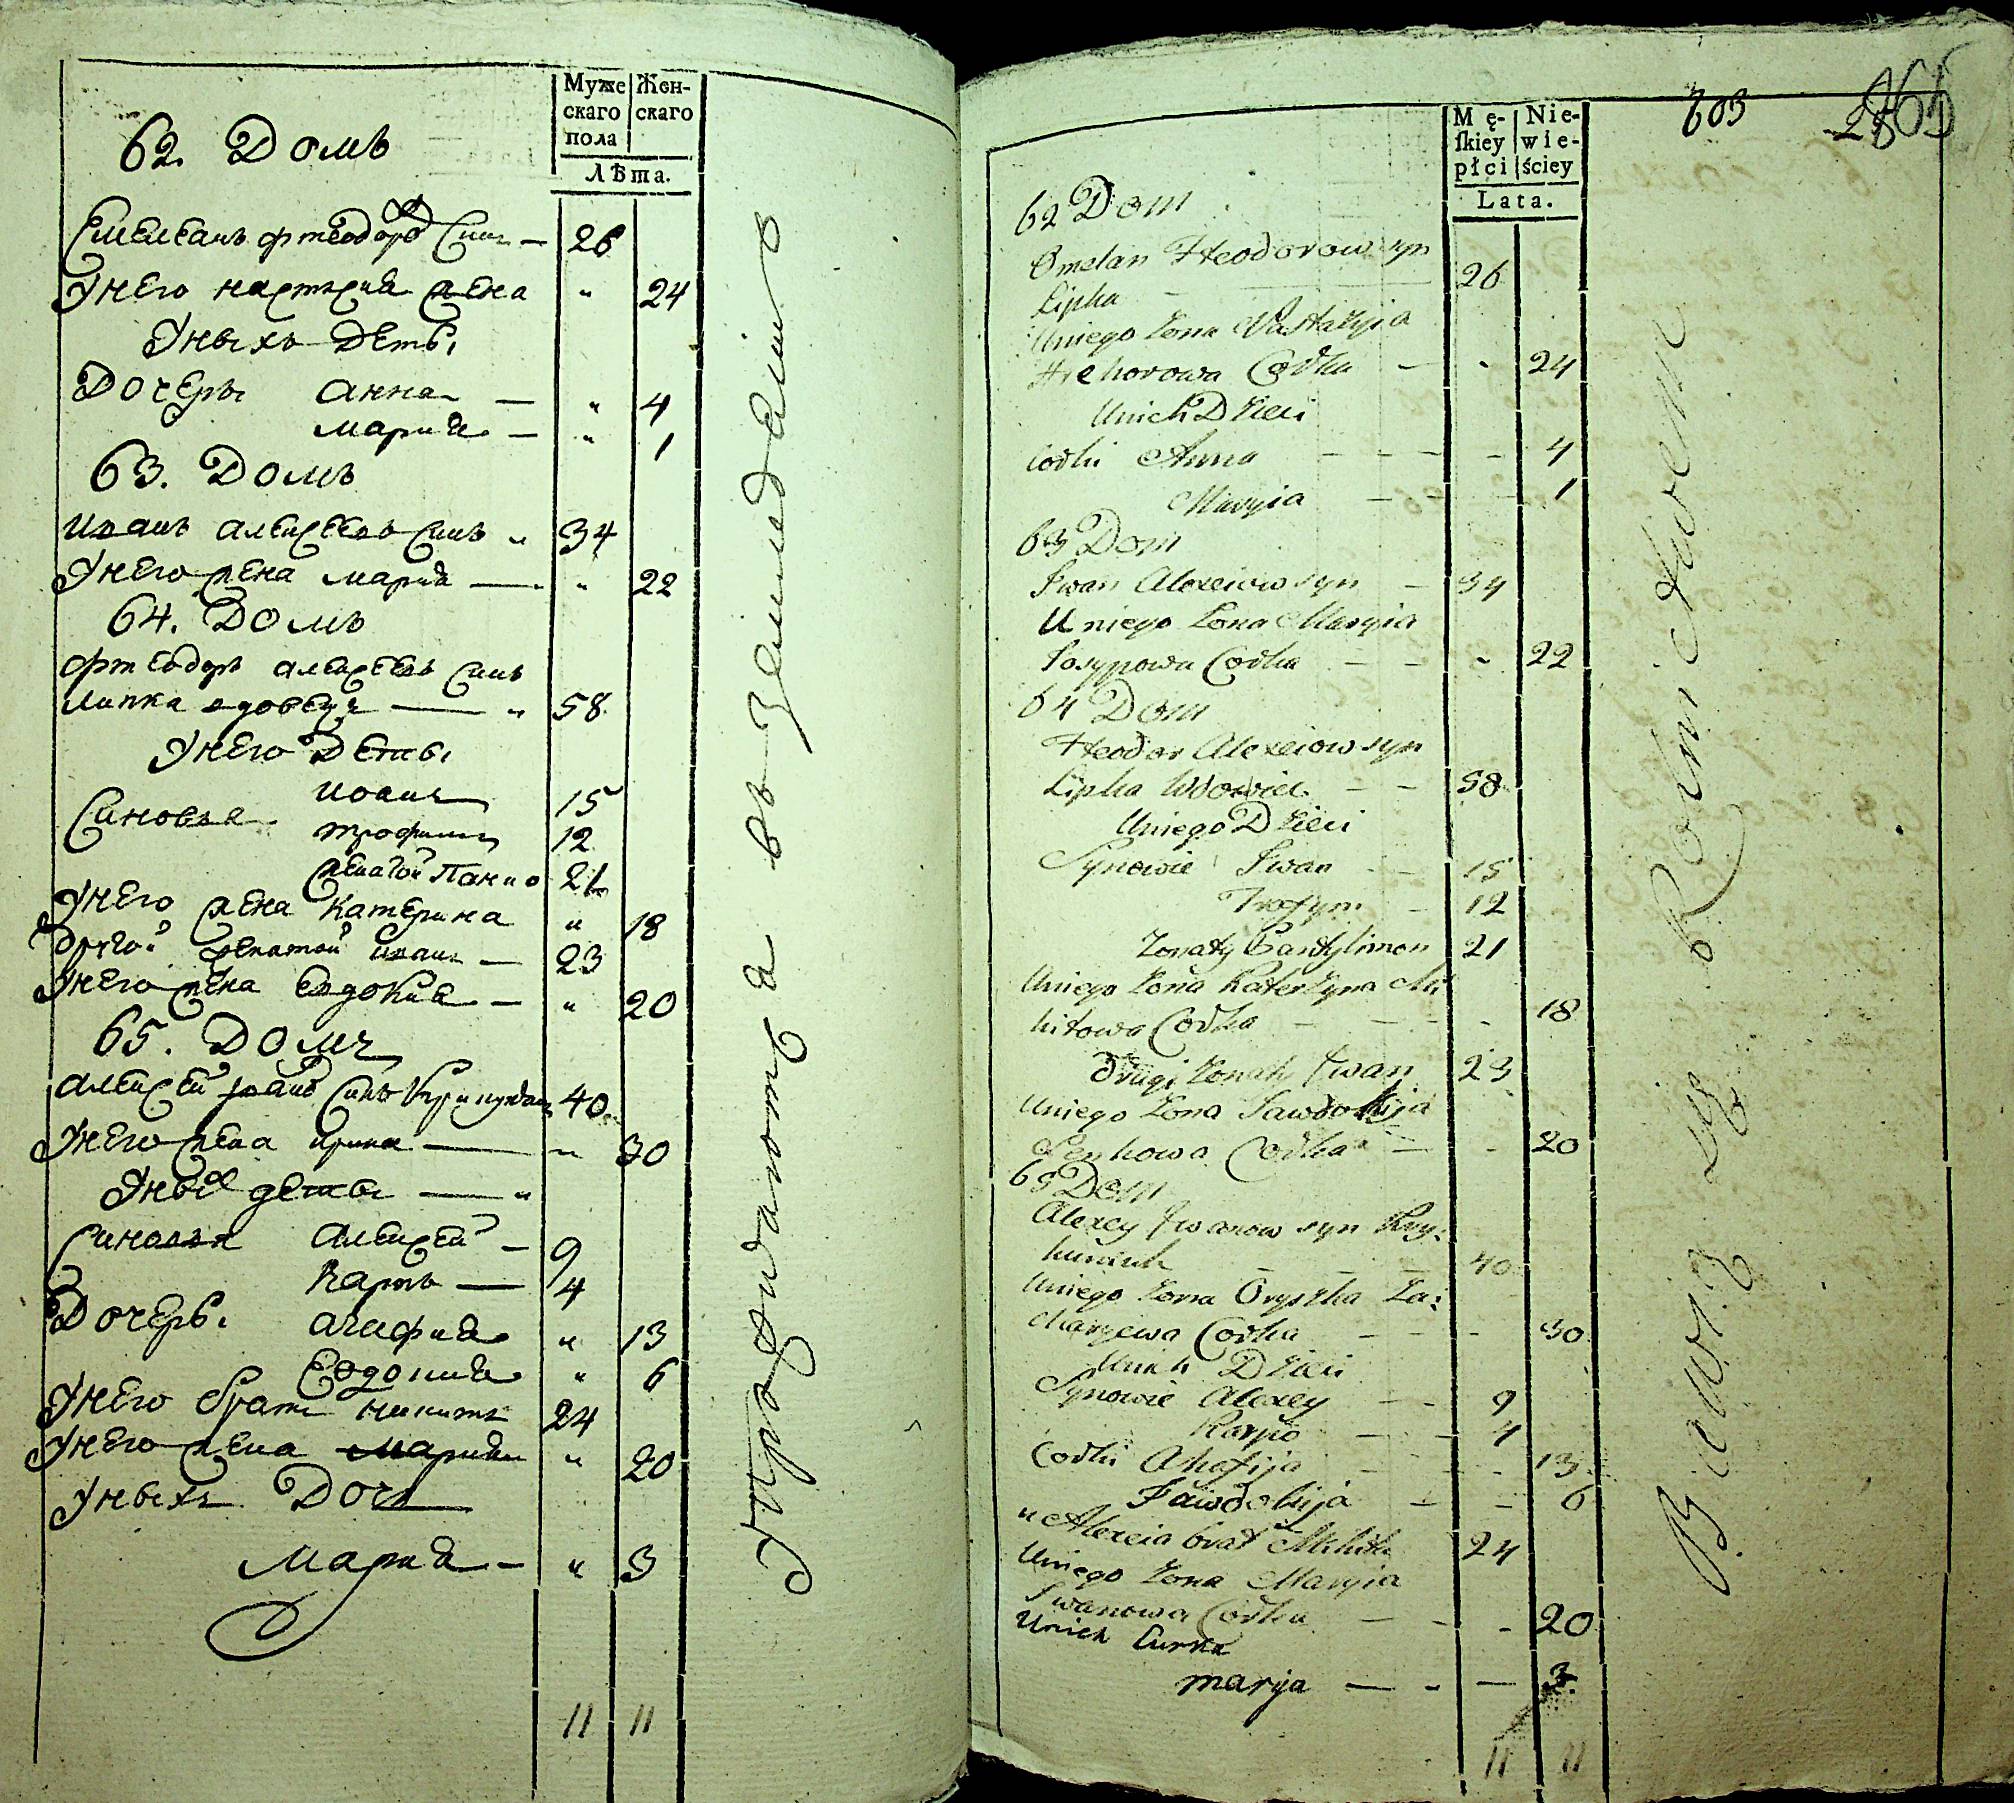 Муже
скаго
пола
Жен-
скаго
Лѣта.
62. Домъ
Емелеанъ фтеодоро Синъ — 26
Унего настасия жена " 24
Уныхъ Деты
Дочеры Анна — " 4
Мариа — " 1
63. Домъ
Иванъ алексеевъ Синъ " 34
Унего жена мариа — " 22
64. Домъ
фтеодоръ алексеевъ Синъ
липка вдовецъ — " 58
Унего Деты
Синовья иванъ 15
трофимъ 12
женатой 21
Унего жена катерина " 18
другой женатой иванъ — 23
Унего жена Евдокиа — " 20
65. Домъ
алексей ивано Синъ 40
Унего жена ирина — " 30
Уных деты — "
Синовья алексей — 9
карпъ — 4
Дочеры агафиа " 13
Евдокиа " 6
Унего братъ никита 24
Унего жена мариа " 20
Уныхъ Дочь
Мариа — " 3
11 11
Упродиватъ въ
Mę-
ſkiey
płci
Nie-
wie-
ściey
Lata.
303
62 Dom
Omelan Fteodorow syn
Lipka — 26
Uniego Żona Nastazyia
Hrehorowa Codka — - 24
Unich Dzieci
Codki Anna - - - - 4
Maryia - - - 1
63 Dom
Iwan Alexiow syn — 34
Uniego Żona Maryia
Iosypowa Codka - - - 22
64 Dom
Fteodor Alexiow syn
Lipka Wdowiec - - 58
Uniego Dzieci
Synowie Iwan - - 15
Trofym - 12
Żonaty Pantylimon 21
Uniego Żona Katerzyna Mi
kitowa Codka - - - 18
Drugi Żonaty Iwan 23
Uniego Żona Iawdokija
Senkowa Codka — - 20
65 Dom
Alexey Iwanow syn Kry:
40
Uniego Żona Oryszka Za:
charyewa Codka - - - 30
Unich Dzieci
Synowie Alexey - - 9
Karpo - - 4
Codki Ahafija - - 13
Iawdokija - - 6
u Alexeia brat Mikita 24
Uniego Żona Maryia
Iwanowa Codka — - - 20
Unich Curka
marya — - — 3.
11 11
Rolnictwem